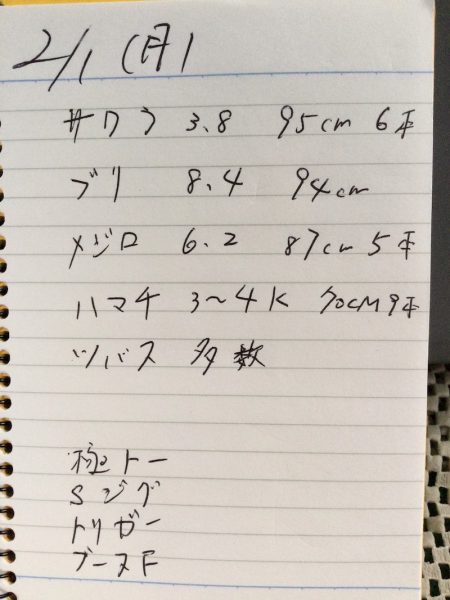 2/1 (月)
サワラ 3.8 95cm 6本
ブリ 8.4 94cm
メジロ 6.2 87cm 5本
ハマチ 3〜4K 70cm 9本
ツバス 多数
極トー
Sジグ
トリガー
ブースF